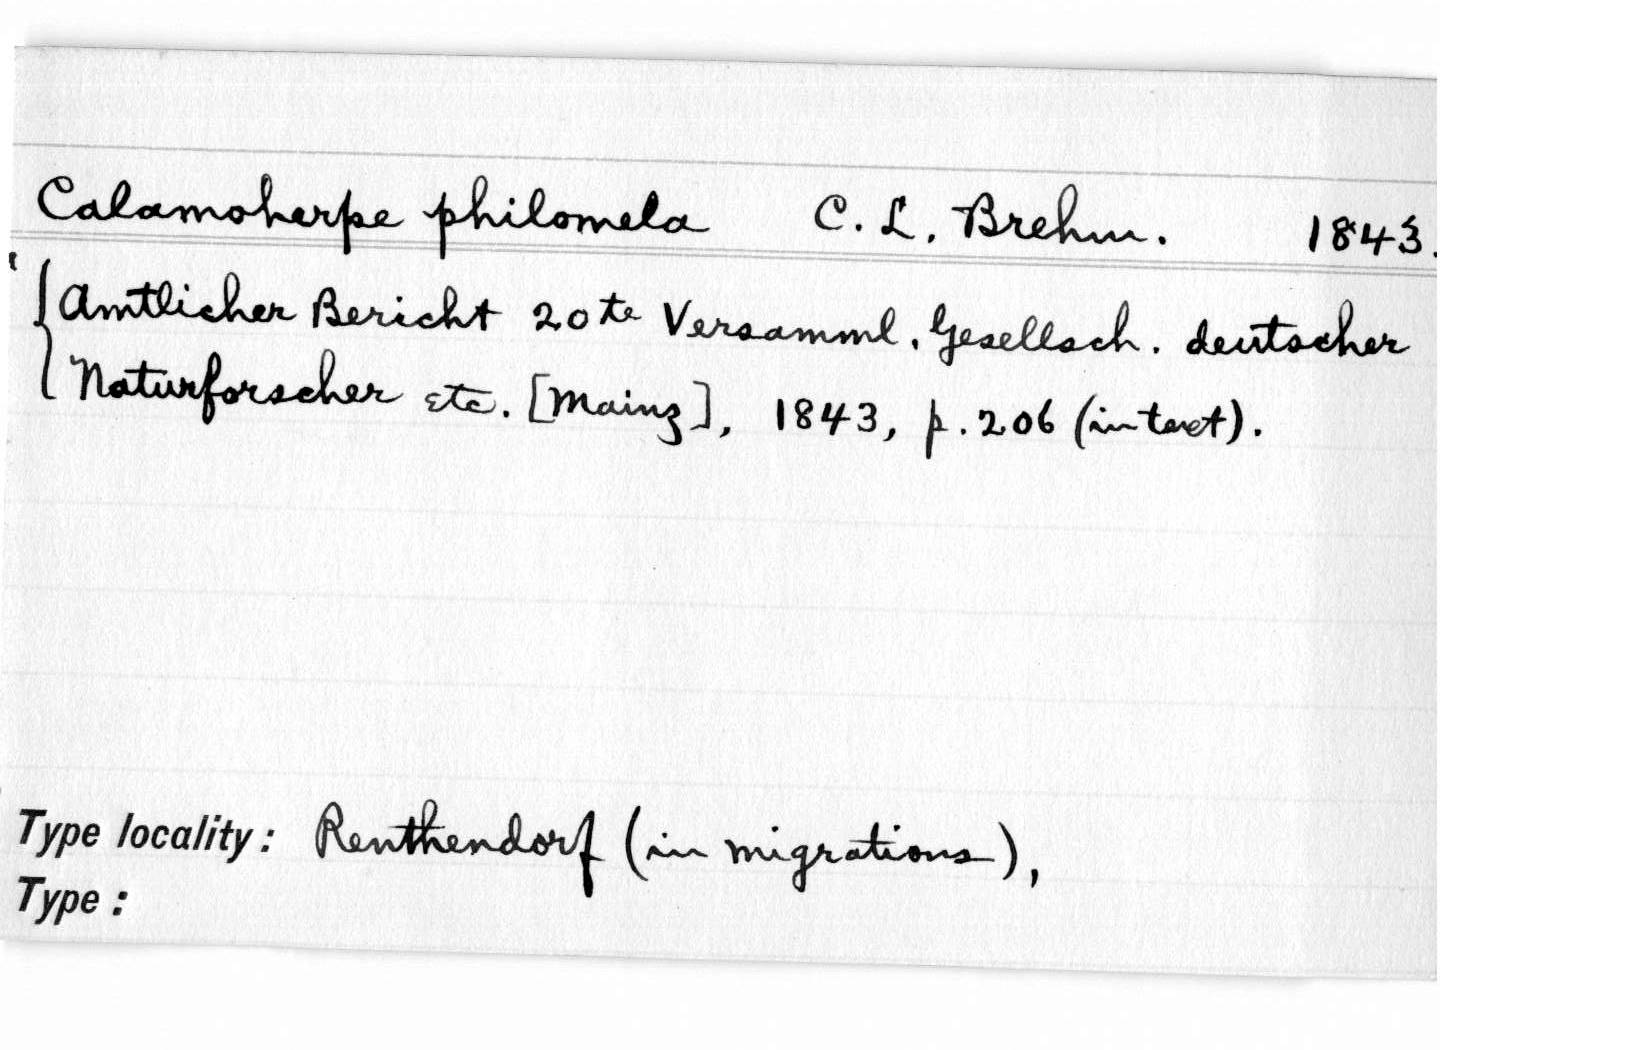 Calamoherpe philomela C. L. Brehm. 1843.
Amtlicher Bericht 20te Versamml. Gesellsch. deutscher
Naturforscher etc. [Mainz], 1843, p. 206 (in text).
Type locality: Renthendorf (in migrations),
Type: